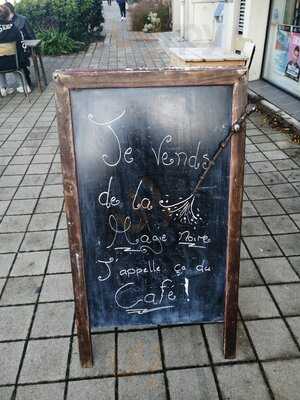 Je vends
de la
Magie noire
J'appelle ça du
Café !